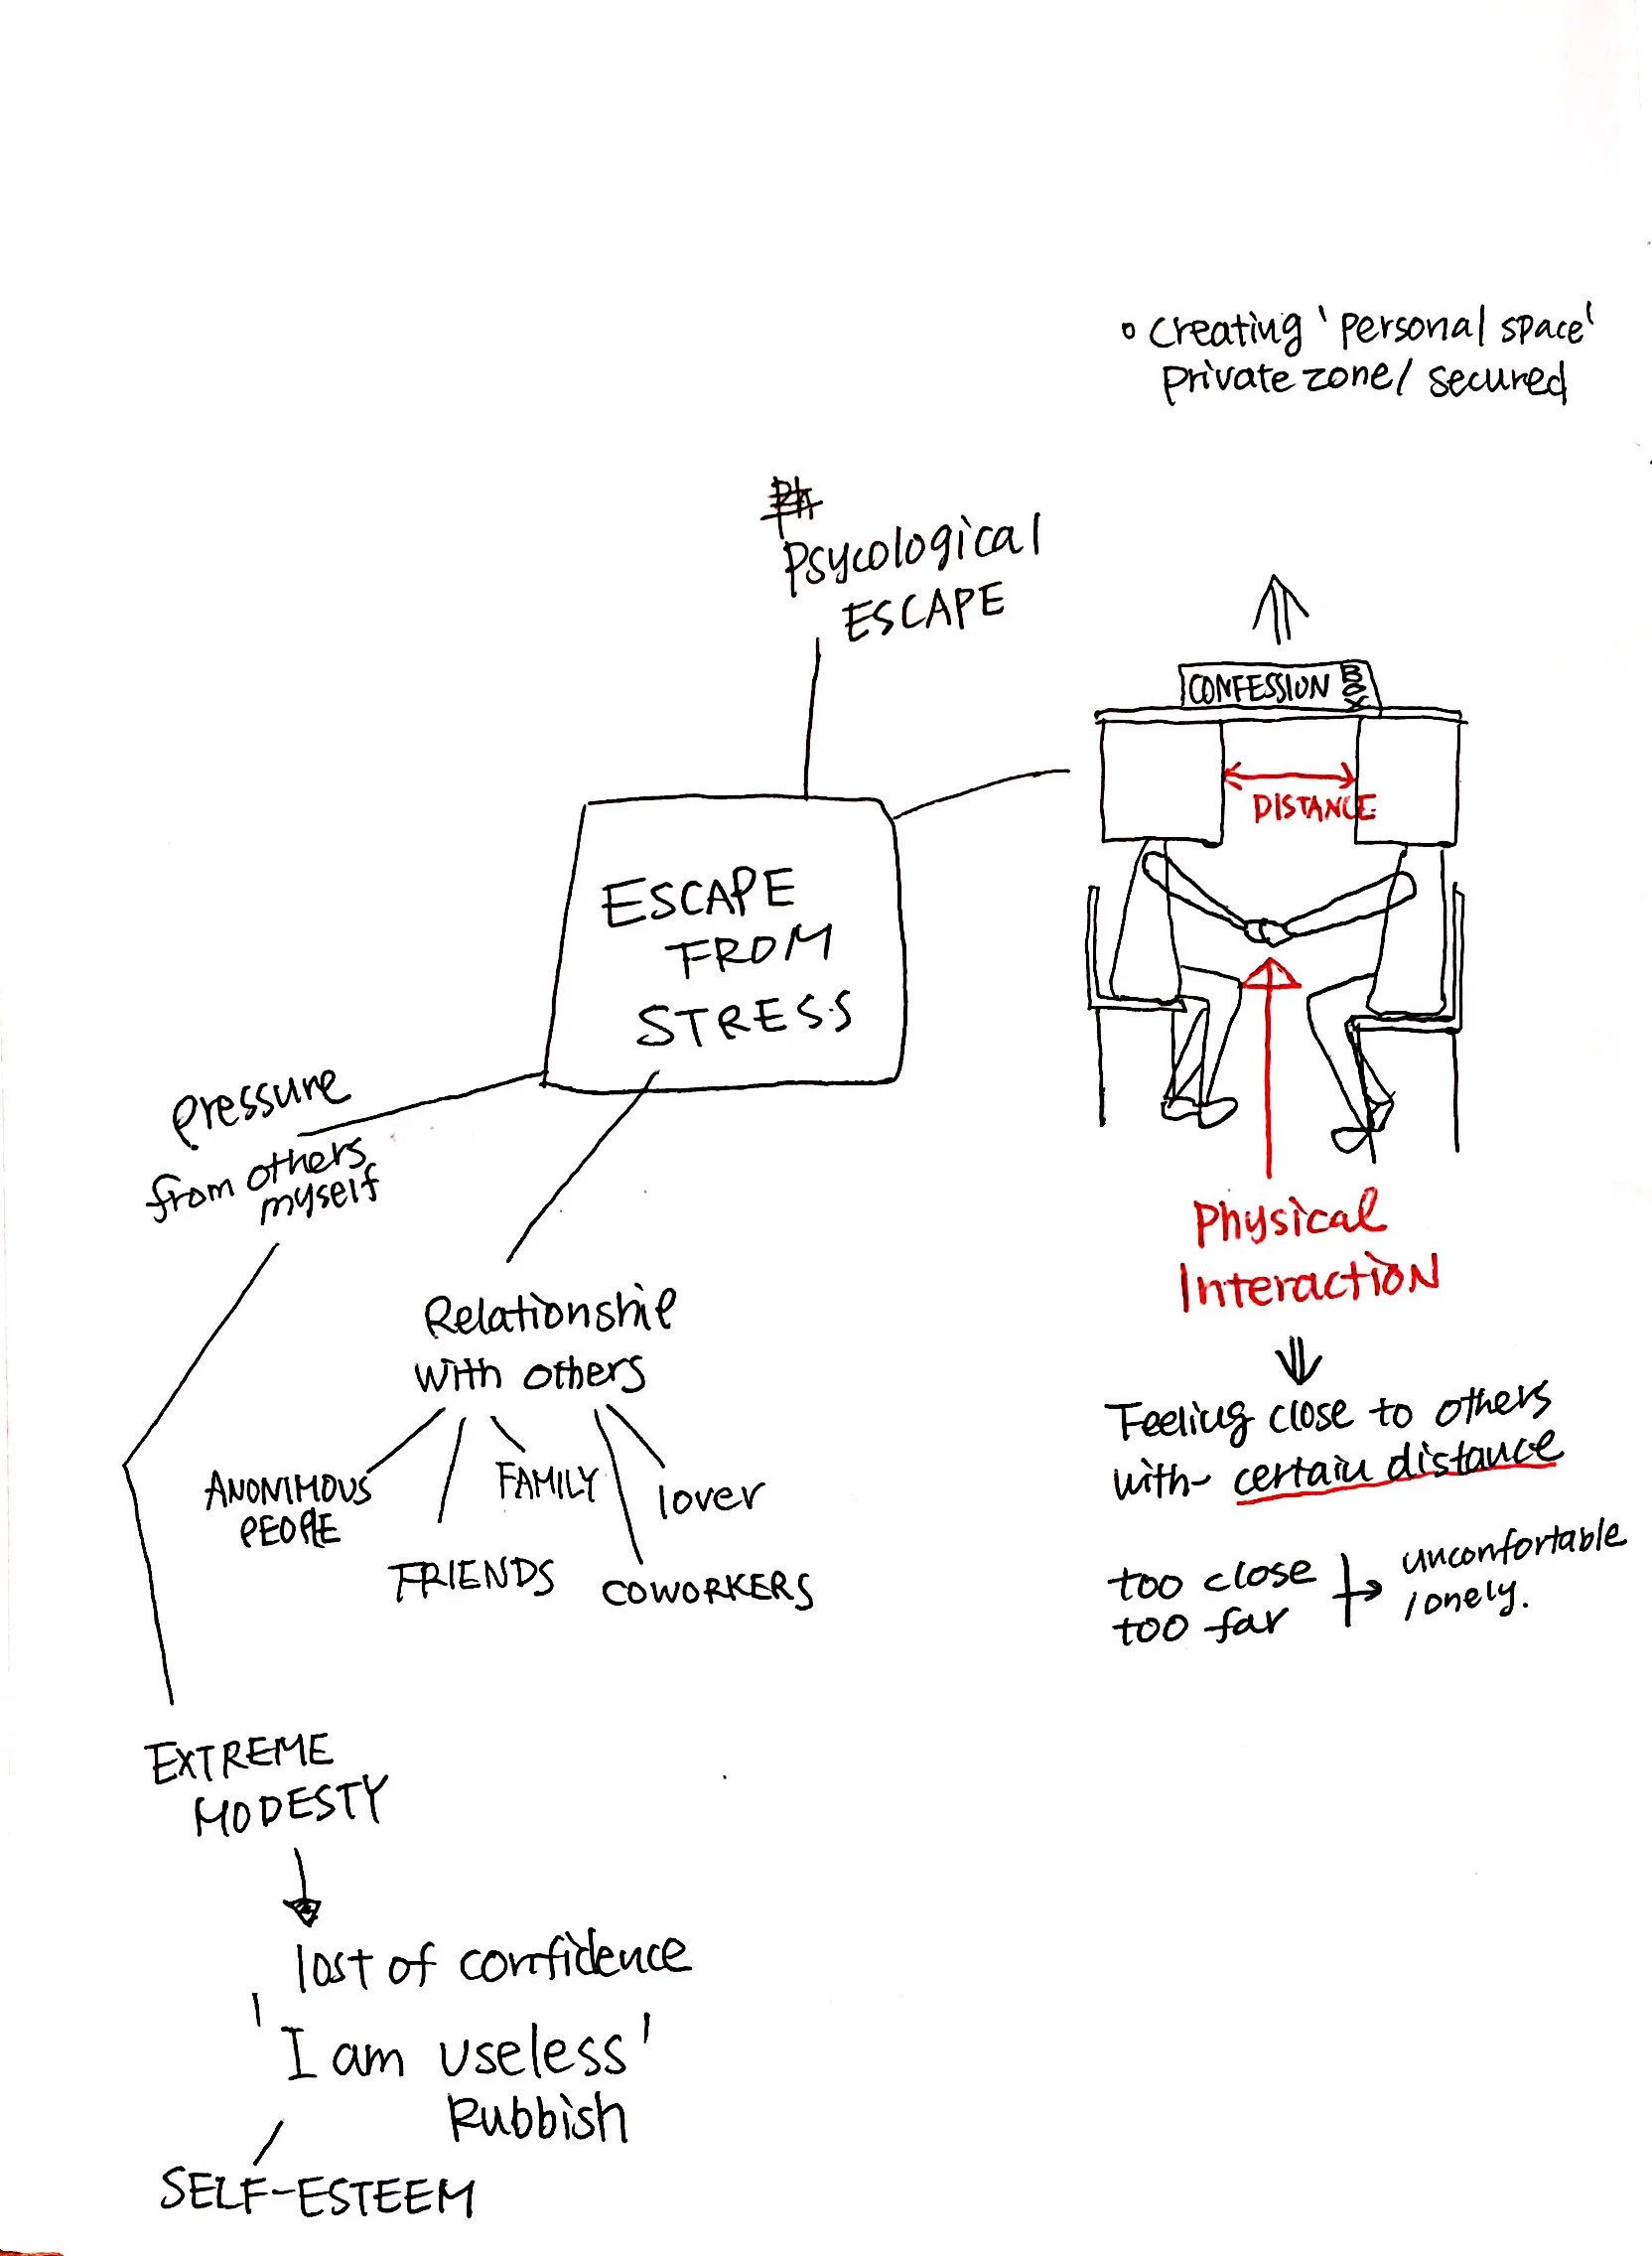 • Creating 'personal space'
private zone/ secured
Psycological
ESCAPE
CONFESSION BOX
DISTANCE
ESCAPE
FROM
STRESS
pressure
from others
myself
Physical
Interaction
Relationship
with others
Feeling close to others
with certain distance
ANONIMOUS
PEOPLE
FAMILY
lover
FRIENDS
COWORKERS
too close
too far
unconfortable
lonely.
EXTREME
MODESTY
lost of confidence
'I am useless'
Rubbish
SELF-ESTEEM